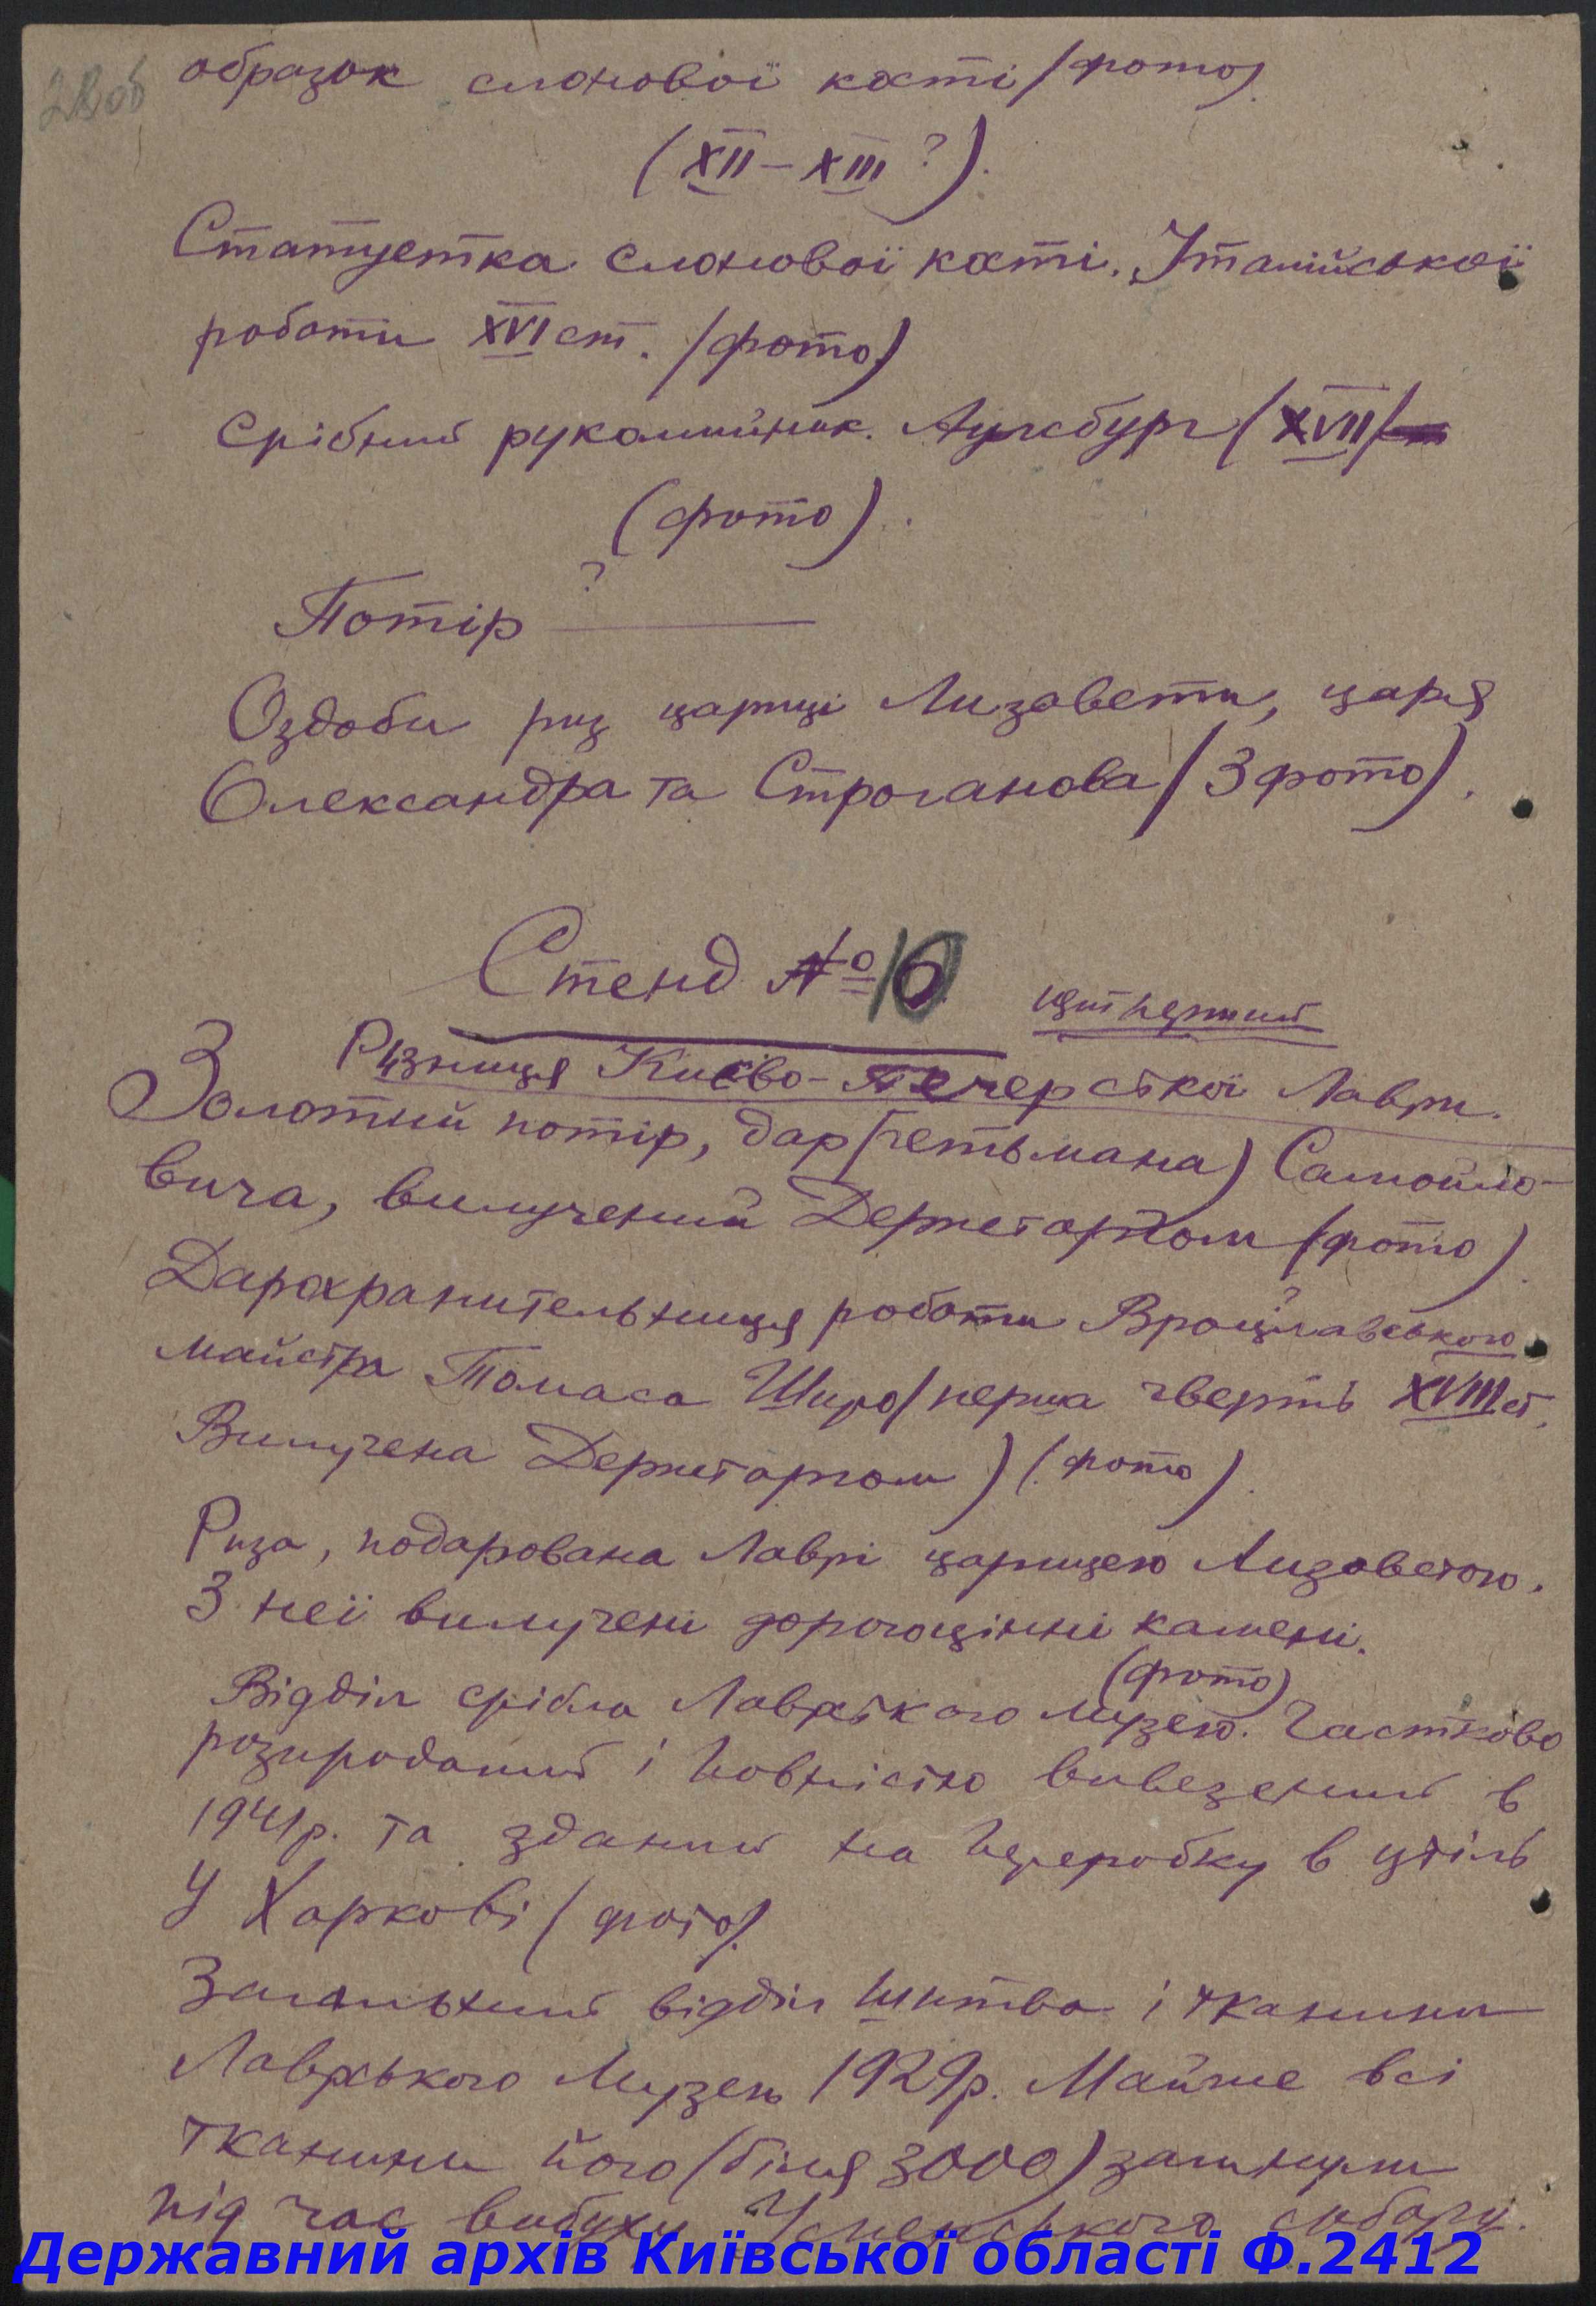 28об
образок слонової кості (фото)
(XII – XIII ?).
Статуетка слонової кості. Італійської
роботи XVI ст. (фото)
Срібний рукомийник. Аугсбург (XVII)
(фото).
Потір ?
Оздоби риз цариці Лизавети, царя
Олександра та Строганова (3 фото).
Стенд № 10
Ризниця Києво-Печерської Лаври.
Золотий потір, дар (гетьмана) Самойло-
вича, вилучений Держторгом (фото).
Дарохранительниця роботи Вроцлавського ?
майстра Томаса (перша чверть XVIII ст.
Вилучена Держторгом) (фото).
Риза, подарована Лаврі царицею Лизаветою.
З неї вилучені дорогоцінні камені.
(фото)
Відділ срібла Лаврського музею. Частково
розпроданий і повністю вивезений в
1941 р. та зданий на переробку в утіль
у Харкові (фото).
Загальний відділ шитва і тканини
Лаврського Музею 1929 р. Майже всі
тканини його (біля 3000) загинули
під час вибуху Успенського собору.
Державний архів Київської області Ф.2412